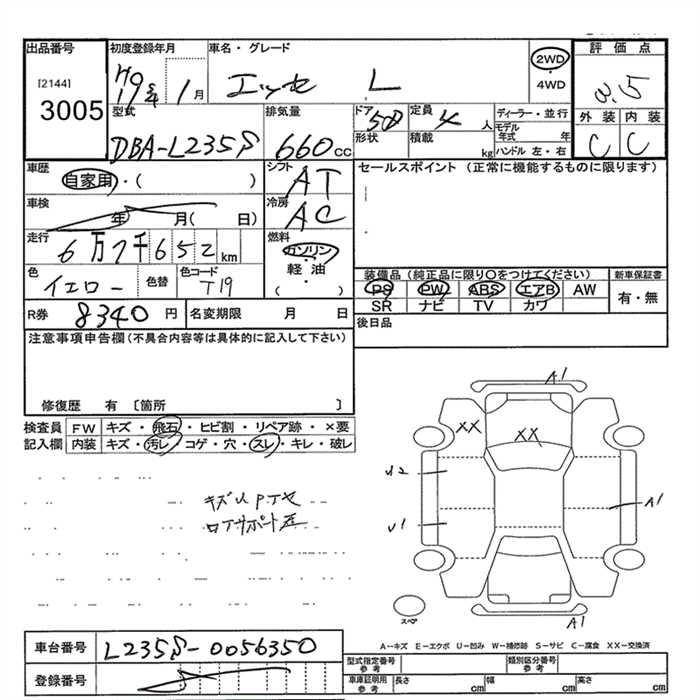 出品番号 初度登録年月 車名・グレード 2WD・4WD 評価点
[2144] H19 1月 エッセ L 3.5
3005 型式 排気量 ドア 定員 ディーラー・並行 外装 内装
DBA-L235S 660cc 5D 4人 モデル年式 年 C C
形状 積載 kg ハンドル 左・右
車歴 シフト セールスポイント (正常に機能するものに限ります)
自家用・( ) AT
車検 冷房
年 月( 日) AC
走行 燃料
6万7千652km ガソリン・軽油・( )
装備品 (純正品に限り〇をつけてください) 新車保証書
色 色替 色コード PS PW ABS エアB AW 有・無
イエロー T19 SR ナビ TV カワ
R券 8340円 名変期限 月 日 後日品
注意事項申告欄 (不具合内容等は具体的に記入して下さい)
修復歴 有 〔箇所 〕
検査員 FW キズ・飛石・ヒビ割・リペア跡・×要
記入欄 内装 キズ・汚レ・コゲ・穴・スレ・キレ・破レ
A1
XX XX
U2
A1
U1
キズUPTセ
ロアサポート
スペア
A1
A-キズ E-エクボ U-凹み W-補修跡 S-サビ C-腐食 XX-交換済
車台番号 L235S-0056350 型式指定番号 参考 類別区分番号 参考
登録番号 車庫証明用 参考 長さ cm 幅 cm 高さ cm